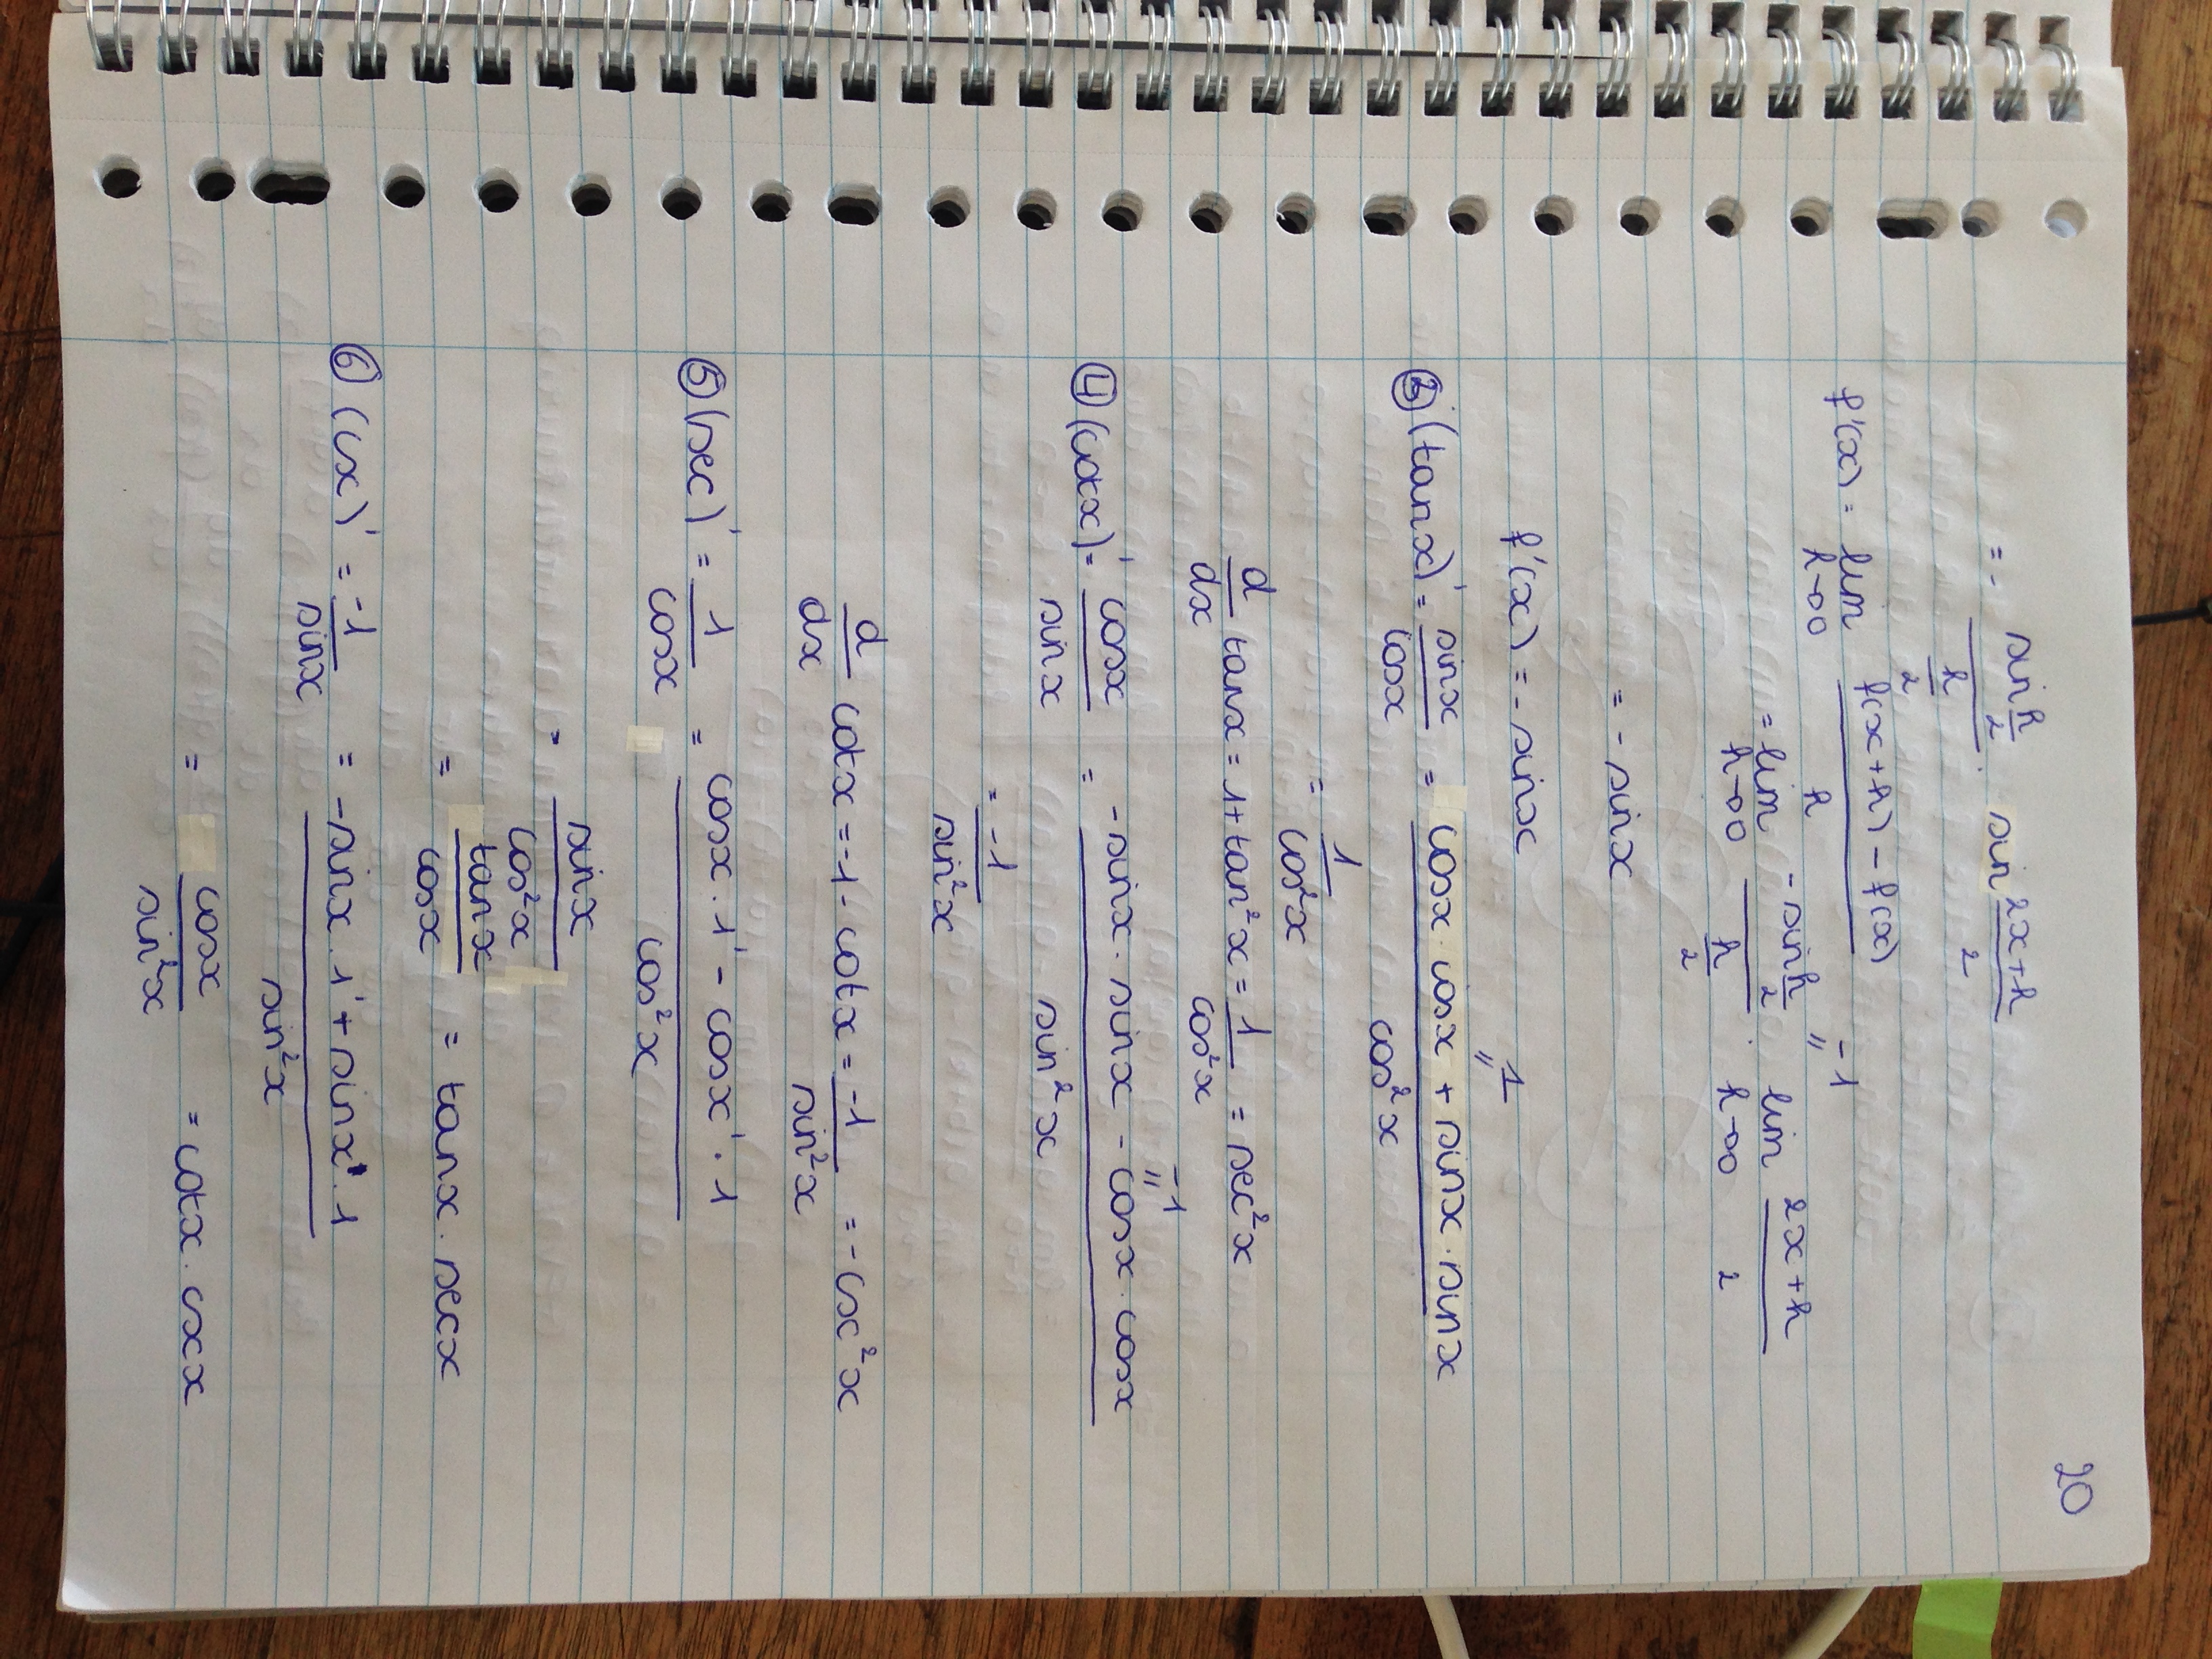 20
= - sin h/2 / h/2 . sin 2x+h / 2
f'(x) = lim h→0 f(x+h) - f(x) / h
-1
"
= lim h→0 -sin h/2 / h/2 . lim h→0 2x+h / 2
= - sinx
f'(x) = - sinx
1
"
③ (tanx)' = sinx / cosx = cosx . cosx + sinx . sinx / cos²x
= 1 / cos²x
d/dx tanx = 1 + tan²x = 1 / cos²x = sec²x
-1
"
④ (cotx)' = cosx / sinx = -sinx . sinx - cosx . cosx / sin²x
= -1 / sin²x
d/dx cotx = -1 - cotx = -1 / sin²x = -csc²x
⑤ (sec)' = 1 / cosx = cosx . 1' - cosx' . 1 / cos²x
= sinx / cos²x
= tanx / cosx = tanx . secx
⑥ (csx)' = -1 / sinx = -sinx . 1' + sinx' . 1 / sin²x
= cosx / sin²x = cotx . cscx